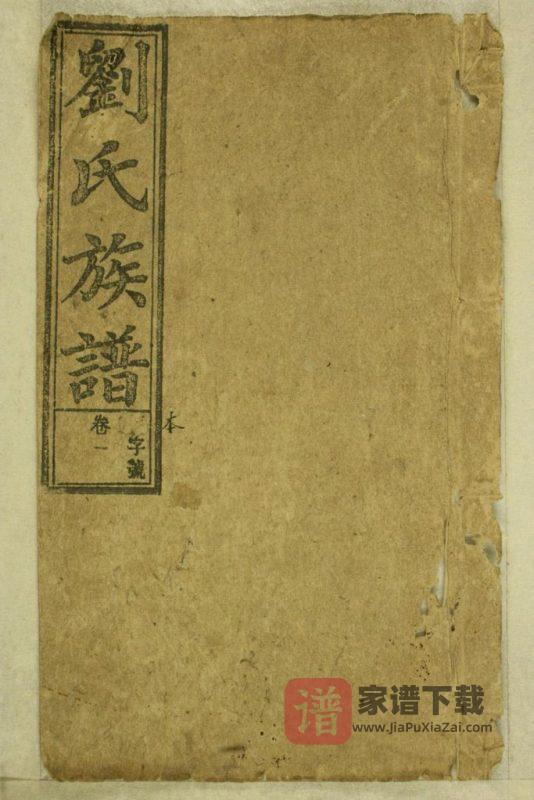 劉氏族譜
字號
卷一
本
谱 家谱下载
www.JiaPuXiaZai.com